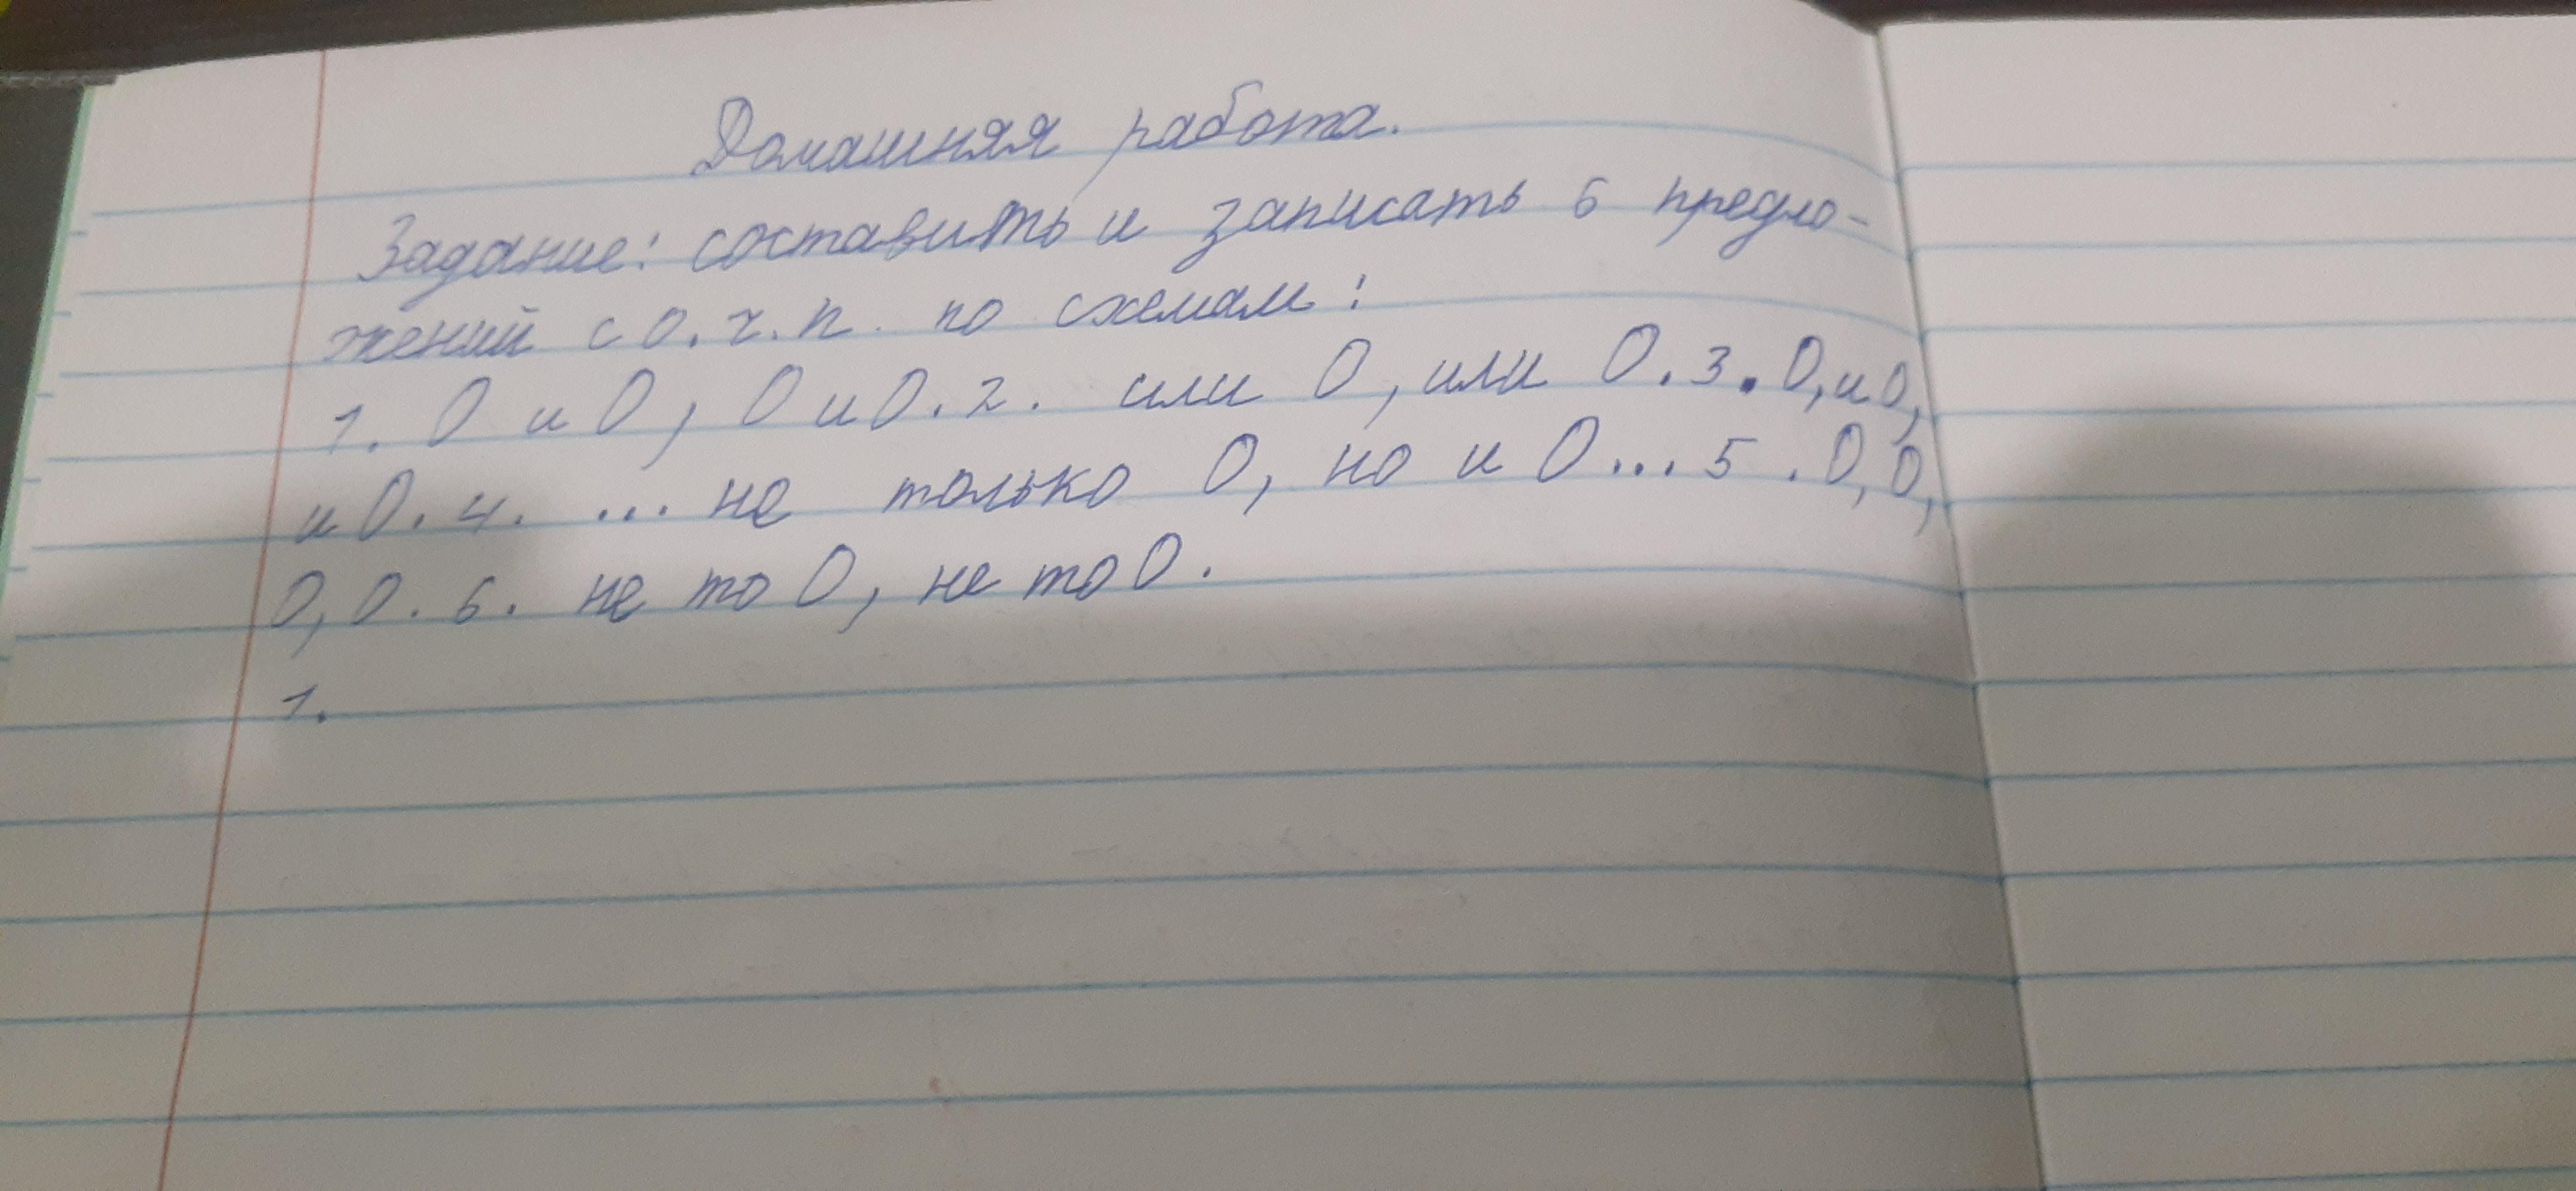 Домашняя работа.
Задание: составить и записать 6 предло-
жений с О.ч.п. по схемам:
1. О и О, О и О. 2. или О, или О. 3. О, и О,
и О. 4. ... не только О, но и О... 5. О, О,
О, О. 6. не то О, не то О.
1.